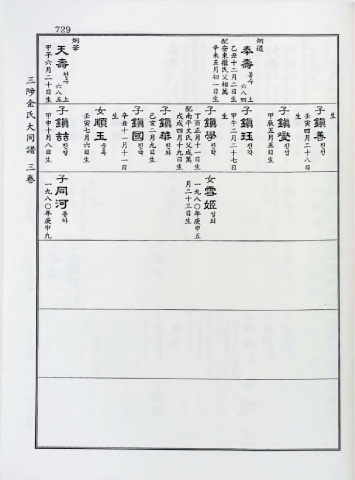 729
三陟金氏大同譜 三卷
炯道
奉壽 봉수 六八四上
乙丑十二月二日生
配安東權氏父相萬
辛未五月初一日生
炯華
天壽 천수 六八五上
甲子六月二十日生
子鎭善 진선
壬寅四月二十八日
生
子鎭燮 진섭
甲辰五月五日生
子鎭珏 진각
甲午二月二十七日
生
子鎭學 진학
丁酉正月十一日生
配南平文氏父成萬
戊戌四月十九日生
子鎭華 진화
己亥二月九日生
子鎭國 진국
辛丑十一月十一日
生
女順玉 순옥
壬寅七月六日生
子鎭喆 진철
甲申十月八日生
女雪姬 설희
一九八〇年庚申五
月二十三日生
子同河 동하
一九八〇年庚申九